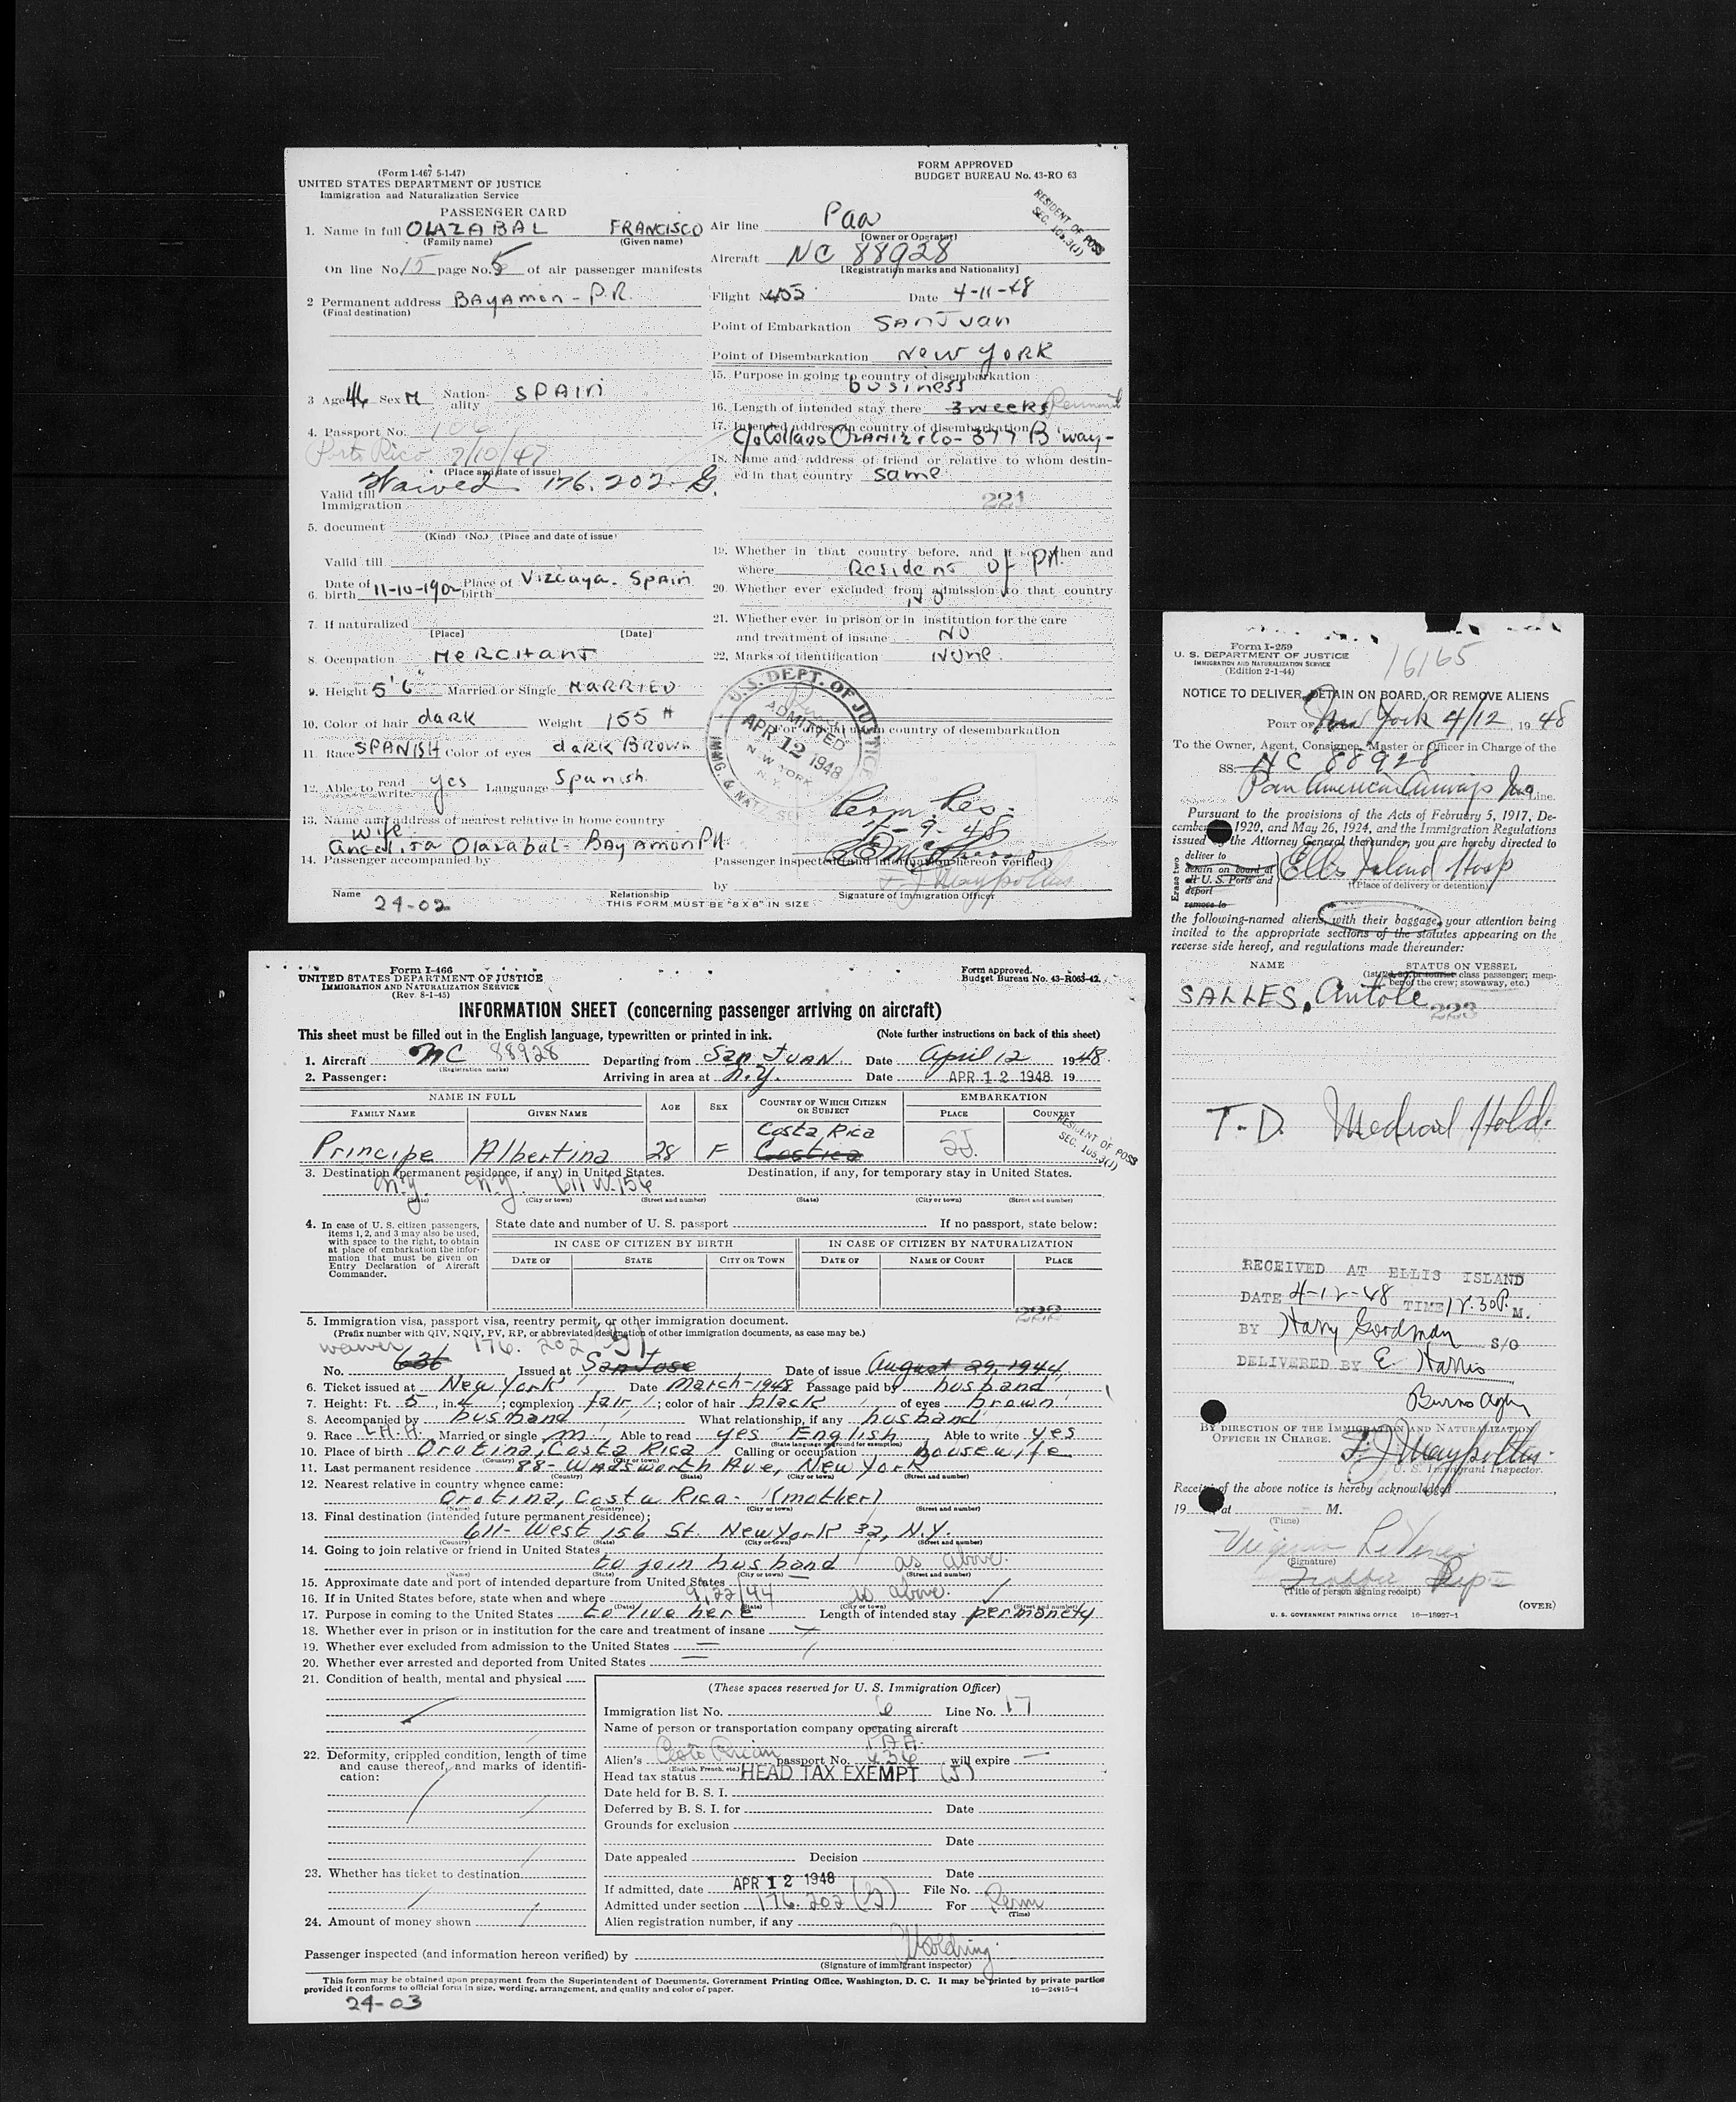 (Form I-467 5-1-47)
UNITED STATES DEPARTMENT OF JUSTICE
Immigration and Naturalization Service
PASSENGER CARD
FORM APPROVED
BUDGET BUREAU No. 43-RO 63
RESIDENT OF POSS
SEC. 105.3(J)
1. Name in full OLAZABAL FRANCISCO
(Family name) (Given name)
On line No. 15 page No. 5 of air passenger manifests
2 Permanent address BAYAMON - P.R.
(Final destination)
3 Age 46 Sex M Nationality SPAIN
4. Passport No. 106
Porto Rico 2/10/47
(Place and date of issue)
Valid till Waived 176.202-G.
Immigration
5. document
(Kind) (No.) (Place and date of issue)
Valid till
6. Date of birth 11-10-190 Place of birth Vizcaya. Spain
7. If naturalized
[Place] [Date]
8. Occupation MERCHANT
9. Height 5'6" Married or Single MARRIED
10. Color of hair dark Weight 155 #
11. Race SPANISH Color of eyes dark BROWN
12. Able to read write yes Language Spanish.
13. Name and address of nearest relative in home country
wife
Olazabal - BAYAMON PR.
14. Passenger accompanied by
Name Relationship
24-02
THIS FORM MUST BE "8 X 8" IN SIZE
Air line Paa
[Owner or Operator]
Aircraft NC 88928
[Registration marks and Nationality]
Flight No. 455 Date 4-11-48
Point of Embarkation SAN JUAN
Point of Disembarkation NEW YORK
15. Purpose in going to country of disembarkation
business
16. Length of intended stay there 3 weeks
17. Intended address in country of disembarkation
377 B'way-
18. Name and address of friend or relative to whom destined in that country same
221
19. Whether in that country before, and if so, when and
where Resident of PR.
20. Whether ever excluded from admission to that country
NO
21. Whether ever in prison or in institution for the care
and treatment of insane NO
22. Marks of identification None.
For official use in country of desembarkation
U.S. DEPT. OF JUSTICE
ADMITTED
APR 12 1948
NEW YORK
N.Y.
IMMG. & NAT. SER
Perm. Res.
4-9-48
Passenger inspected (and information hereon verified)
by
Signature of Immigration Officer
Form I-466
UNITED STATES DEPARTMENT OF JUSTICE
IMMIGRATION AND NATURALIZATION SERVICE
(Rev. 8-1-45)
Form approved.
Budget Bureau No. 43-R063-42.
INFORMATION SHEET (concerning passenger arriving on aircraft)
This sheet must be filled out in the English language, typewritten or printed in ink. (Note further instructions on back of this sheet)
1. Aircraft NC 88928 Departing from San JUAN. Date April 12 1948.
(Registration marks)
2. Passenger: Arriving in area at N.Y. Date APR 12 1948 19
NAME IN FULL AGE SEX COUNTRY OF WHICH CITIZEN OR SUBJECT EMBARKATION
FAMILY NAME GIVEN NAME PLACE COUNTRY
Costa Rica
Principe Albertina 28 F SJ.
RESIDENT OF POSS
SEC. 105.3(J)
3. Destination (permanent residence, if any) in United States. Destination, if any, for temporary stay in United States.
N.Y. N.Y. 611 W. 156
(State) (City or town) (Street and number) (State) (City or town) (Street and number)
4. In case of U. S. citizen passengers, items 1, 2, and 3 may also be used, with space to the right, to obtain at place of embarkation the information that must be given on Entry Declaration of Aircraft Commander.
State date and number of U. S. passport If no passport, state below:
IN CASE OF CITIZEN BY BIRTH IN CASE OF CITIZEN BY NATURALIZATION
DATE OF STATE CITY OR TOWN DATE OF NAME OF COURT PLACE
222
5. Immigration visa, passport visa, reentry permit, or other immigration document.
(Prefix number with QIV, NQIV, PV, RP, or abbreviated designation of other immigration documents, as case may be.)
waiver 176.202 (G)
No. 636 Issued at San Jose Date of issue August 29, 1944
6. Ticket issued at New York Date March-1948 Passage paid by husband
7. Height: Ft. 5, in. 2; complexion fair; color of hair black of eyes brown
8. Accompanied by husband What relationship, if any husband
9. Race L.A.H. Married or single m Able to read yes English Able to write yes
(State language or ground for exemption)
10. Place of birth Orotina, Costa Rica Calling or occupation housewife
(Country) (City or town)
11. Last permanent residence 88- Wadsworth Ave, New York
(Country) (State) (City or town) (Street and number)
12. Nearest relative in country whence came:
Orotina, Costa Rica. (mother)
(Name) (Country) (City or town) (Street and number)
13. Final destination (intended future permanent residence):
611- West 156 St. New York 32, N.Y.
(Country) (State) (City or town) (Street and number)
14. Going to join relative or friend in United States
to join husband as above.
(Name) (State) (City or town) (Street and number)
15. Approximate date and port of intended departure from United States
16. If in United States before, state when and where 9/22/44 as above.
(Date) (State) (City or town) (Street and number)
17. Purpose in coming to the United States to live here Length of intended stay permanety
18. Whether ever in prison or in institution for the care and treatment of insane
19. Whether ever excluded from admission to the United States
20. Whether ever arrested and deported from United States
21. Condition of health, mental and physical
22. Deformity, crippled condition, length of time and cause thereof, and marks of identification:
23. Whether has ticket to destination
24. Amount of money shown
(These spaces reserved for U. S. Immigration Officer)
Immigration list No. 6 Line No. 17
Name of person or transportation company operating aircraft
P.A.A.
Alien's Costa Rican passport No. 636 will expire
(English, French, etc.)
Head tax status HEAD TAX EXEMPT (J)
Date held for B. S. I.
Deferred by B. S. I. for Date
Grounds for exclusion
Date
Date appealed Decision
Date
If admitted, date APR 12 1948 File No.
Admitted under section 176.202 (G) For Perm
(Time)
Alien registration number, if any
Passenger inspected (and information hereon verified) by
(Signature of immigrant inspector)
This form may be obtained upon prepayment from the Superintendent of Documents, Government Printing Office, Washington, D. C. It may be printed by private parties
provided it conforms to official form in size, wording, arrangement, and quality and color of paper. 16—24915-4
24-03
Form I-259
U. S. DEPARTMENT OF JUSTICE
IMMIGRATION AND NATURALIZATION SERVICE
(Edition 2-1-44)
16165
NOTICE TO DELIVER, DETAIN ON BOARD, OR REMOVE ALIENS
PORT OF New York 4/12, 1948
To the Owner, Agent, Consignee, Master or Officer in Charge of the
SS. NC 88928
Pan American Airways Inc Line.
Pursuant to the provisions of the Acts of February 5, 1917, De-
cember 1920, and May 26, 1924, and the Immigration Regulations
issued by the Attorney General thereunder, you are hereby directed to
Erase two
deliver to
detain on board at
all U. S. Ports and
deport
remove to
Ellis Island Hosp
(Place of delivery or detention)
the following-named aliens, with their baggage, your attention being
invited to the appropriate sections of the statutes appearing on the
reverse side hereof, and regulations made thereunder:
NAME STATUS ON VESSEL
(1st, 2d, 3d, or tourist class passenger; member of the crew; stowaway, etc.)
SALLES, Antole
223
T.D. Medical Hold.
RECEIVED AT ELLIS ISLAND
DATE 4-12-48 TIME 12.30 P.M.
BY Harry Goodman S/O
DELIVERED BY E. Harris
Burns
BY DIRECTION OF THE IMMIGRATION AND NATURALIZATION
OFFICER IN CHARGE.
U. S. Immigrant Inspector.
Receipt of the above notice is hereby acknowledged
19 at M.
(Time)
(Signature)
(Title of person signing receipt)
U. S. GOVERNMENT PRINTING OFFICE 16—18927-1
(OVER)